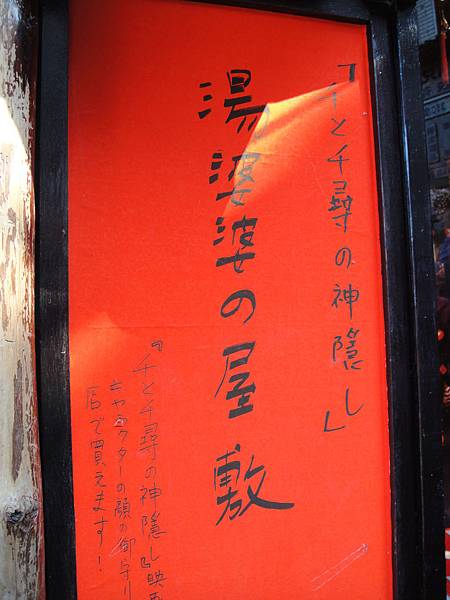 「千と千尋の神隠し」
湯婆婆の屋敷
『千と千尋の神隠し』映画
キャラクターの顔の御守り
店で買えます！